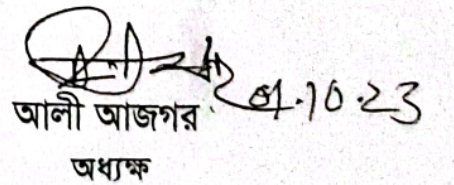 01.10.23
আলী আজগর
অধ্যক্ষ